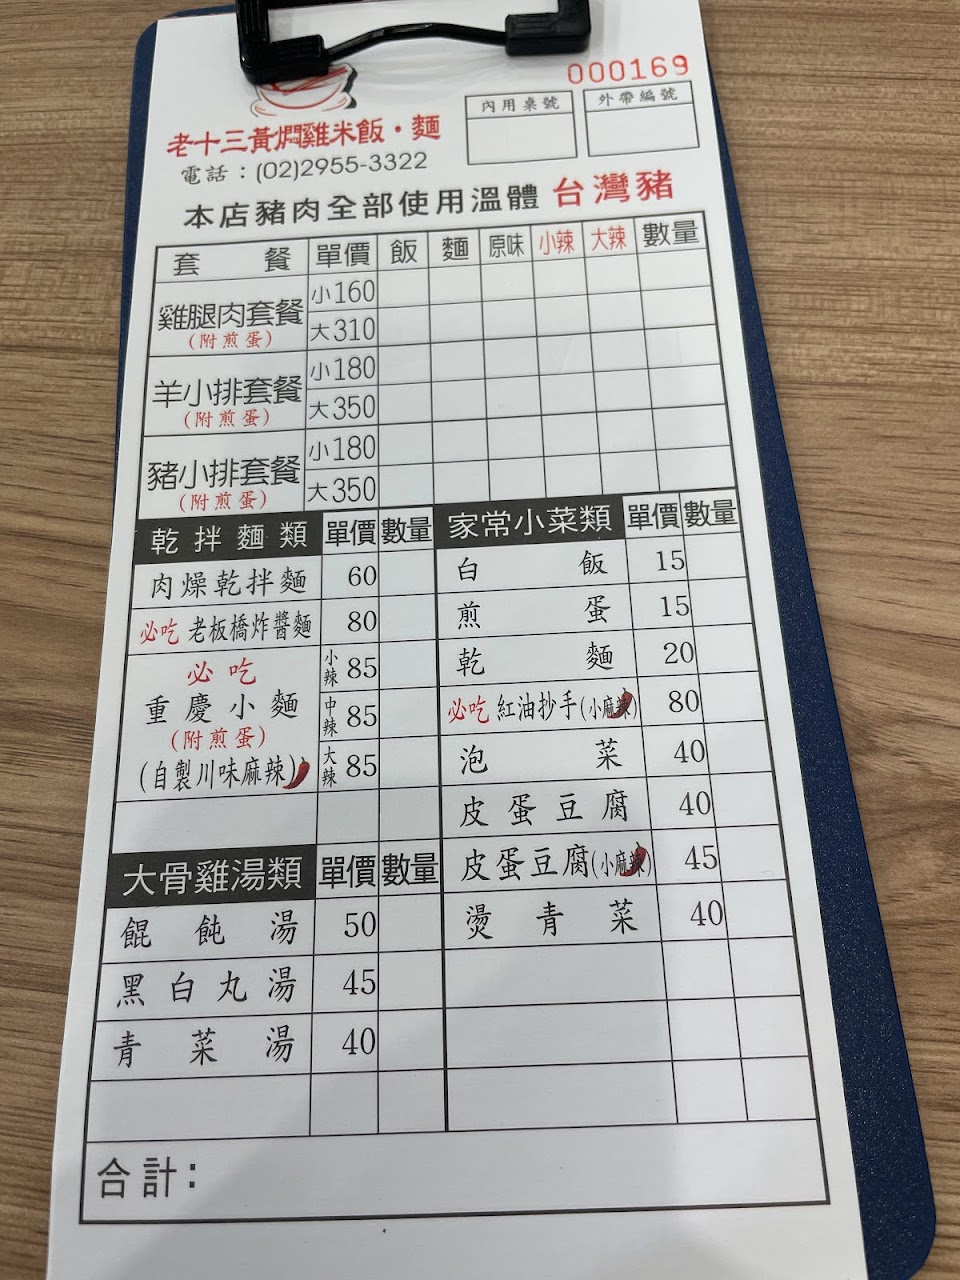 000169
內用桌號 外帶編號
老十三黃燜雞米飯·麵
電話：(02)2955-3322
本店豬肉全部使用溫體 台灣豬
套餐 單價 飯 麵 原味 小辣 大辣 數量
雞腿肉套餐 小160
(附煎蛋) 大310
羊小排套餐 小180
(附煎蛋) 大350
豬小排套餐 小180
(附煎蛋) 大350
乾拌麵類 單價 數量
肉燥乾拌麵 60
必吃 老板橋炸醬麵 80
必吃 小辣 85
重慶小麵 中辣 85
(附煎蛋)
(自製川味麻辣) 大辣 85
大骨雞湯類 單價 數量
餛飩湯 50
黑白丸湯 45
青菜湯 40
家常小菜類 單價 數量
白飯 15
煎蛋 15
乾麵 20
必吃 紅油抄手(小麻辣) 80
泡菜 40
皮蛋豆腐 40
皮蛋豆腐(小麻辣) 45
燙青菜 40
合計：